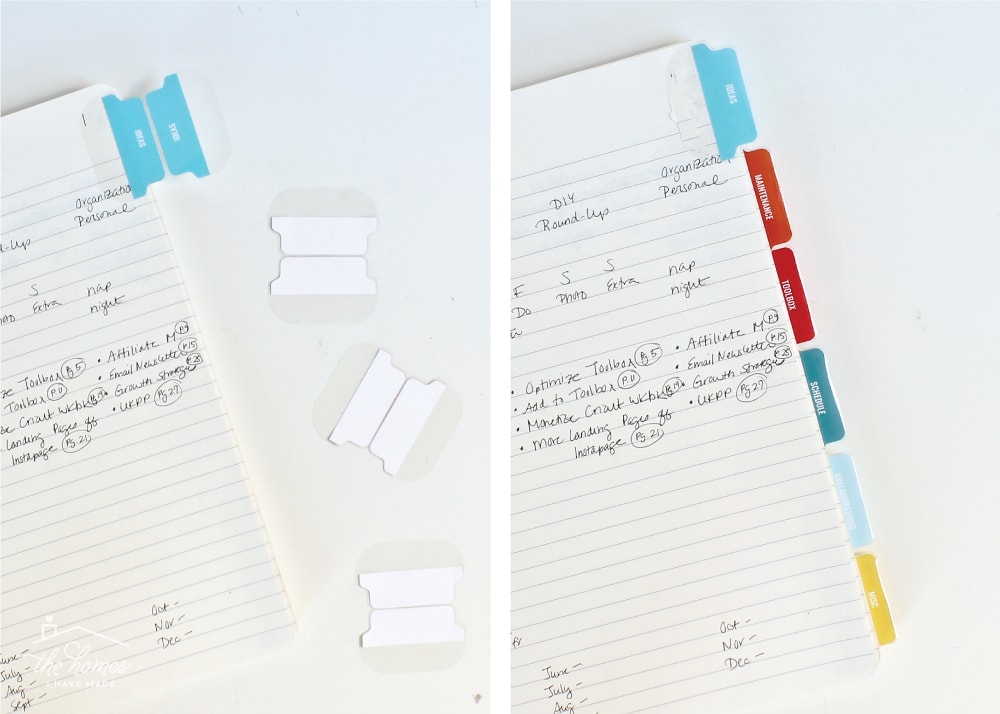 IDEAS
IDEAS
Organization
Personal
d-Up
S
Extra
nap
night
ze Toolbox Pg 5
Toolbox P.11
ze Cricut WKBK
Landing Pages off
Instapage Pg. 21
• Affiliate M P.9
• Email Newslette P.15
• Growth Strategie
• UKPP Pg 27
Oct –
Nov –
Dec –
June –
July –
Aug –
Sept –
the homes
I HAVE MADE
IDEAS
MAINTENANCE
TOOLBOX
SCHEDULE
COLLABORATIONS
MISC
DIY
Round-Up
Organization
Personal
F
Do
S
Photo
S
Extra
nap
night
• Optimize Toolbox Pg 5
• Add to Toolbox P.11
• Monetize Cricut WKBK
• More Landing Pages off
Instapage Pg. 21
• Affiliate M P.9
• Email Newslette P.15
• Growth Strategie
• UKPP Pg 27
Oct –
Nov –
Dec –
June –
July –
Aug –